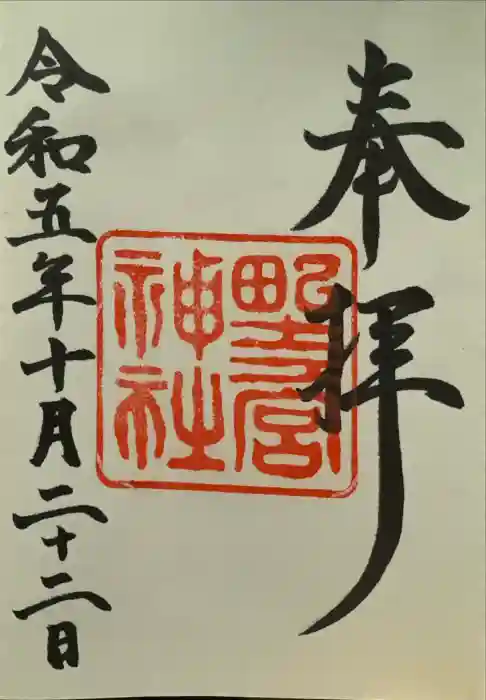 奉拝
野宮
神社
令和五年十月二十二日